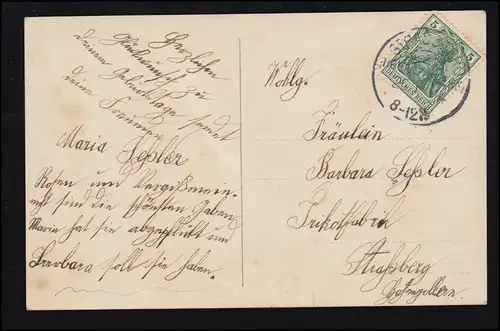 Herzlichen
Glückwunsch zu
deinem Geburtstage sendet
deine Freundin
Maria Leßler
Rosen und Vergißmein-
nicht sind die schönsten Gaben
Maria hat sie abgepflückt und
Barbara soll sie haben.
Wohlg.
Fräulein
Barbara Leßler
Trikotfabrik
Straßberg
Hohenzollern.
5 5
DEUTSCHES REICH
8-12